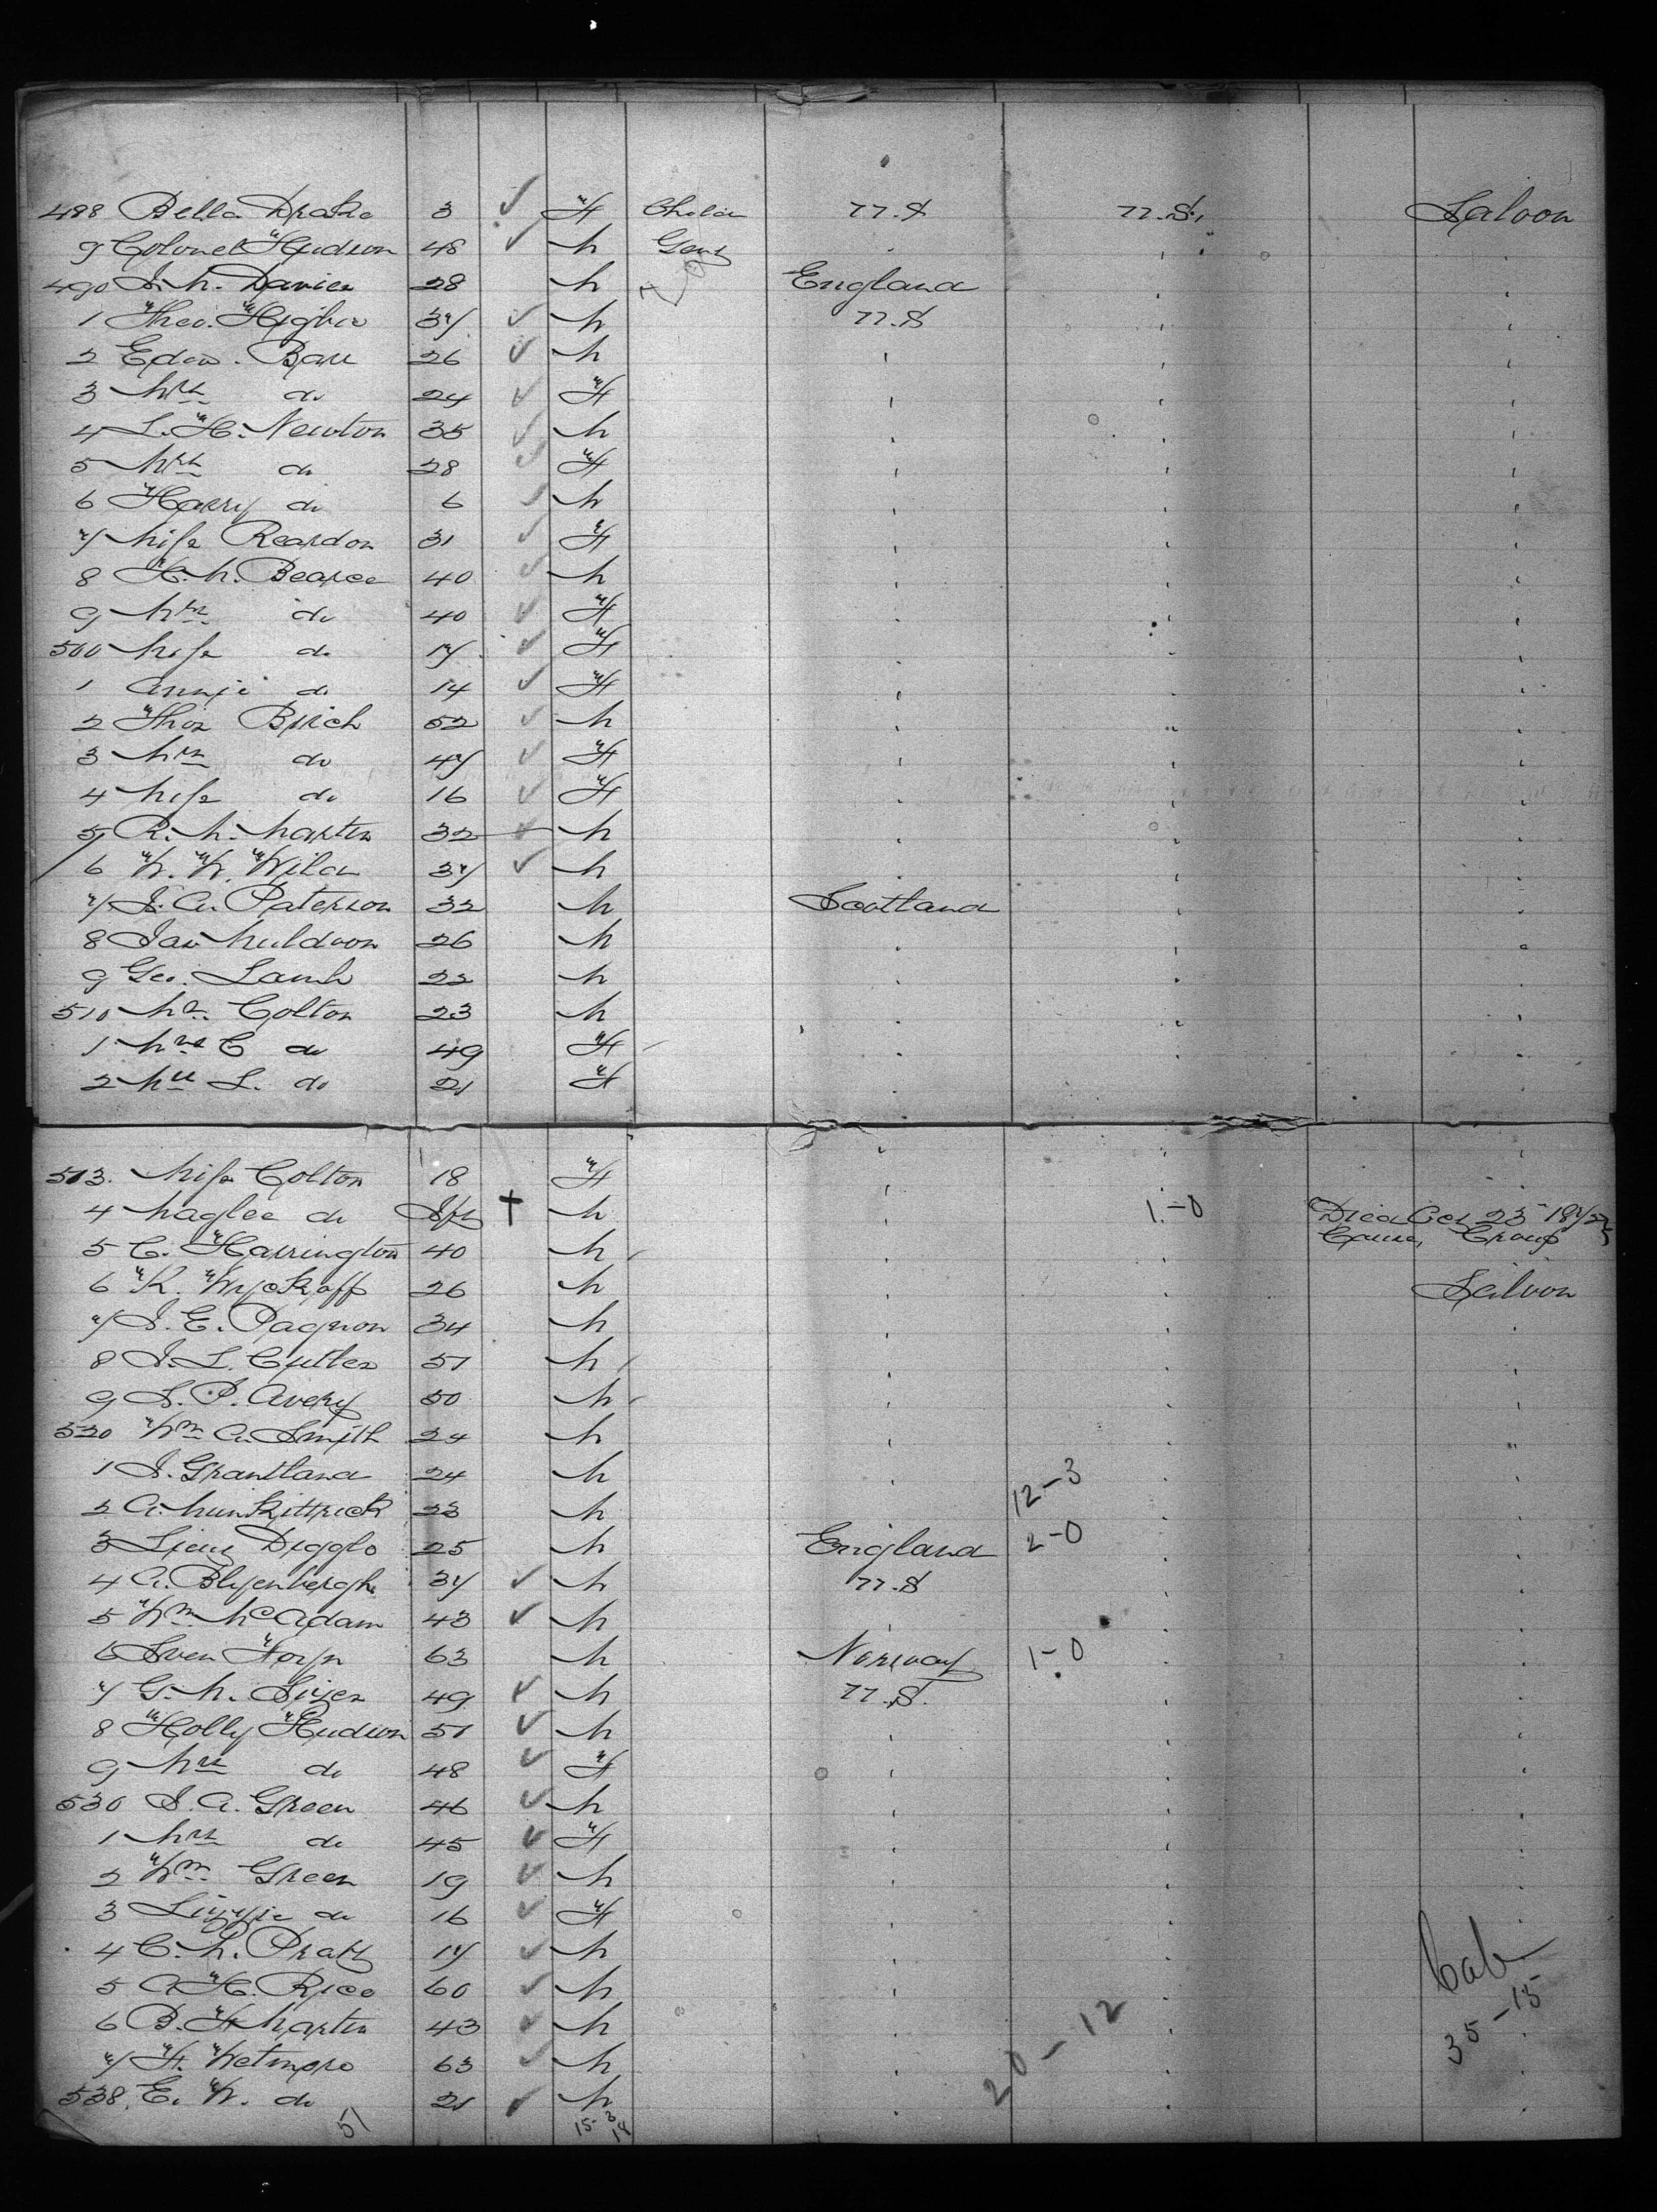 488 Bella Drake 3 ✓ F Child U.S U.S. Saloon
9 Colonel Hudson 48 ✓ M Gent
490 J. M. Davies 28 M England
1 Theo. Higbie 37 ✓ M U.S
2 Edw. Barr 26 ✓ M
3 Mrs do 24 ✓ F
4 L. H. Newton 35 ✓ M
5 Mrs do 28 ✓ F
6 Harry do 6 ✓ M
7 Miss Reardon 31 ✓ F
8 H. M. Bearce 40 ✓ M
9 Mrs do 40 ✓ F
500 Miss do 17 ✓ F
1 Annie do 14 ✓ F
2 Thos Birch 52 ✓ M
3 Mrs do 47 ✓ F
4 Miss do 16 ✓ F
5 R. M. Martin 32 ✓ M
6 W. W. Wild 37 ✓ M
7 J. A. Paterson 32 M Scotland
8 Jas Muldoon 26 M
9 Geo. Lamb 22 M
510 Mr. Colton 23 M
1 Mrs C do 49 F
2 Mll L. do 21 F
513. Miss Colton 18 F
4 do Inft † M 1-0 Died Oct 23 1875
Cause, Croup
5 C. Harrington 40 M
6 K. Wyckoff 26 M Saloon
7 J. E. Pagnon 34 M
8 J. L. Cutler 51 M
9 S. P. Avery 50 M
520 Wm A. Smith 24 M
1 J. Grantland 24 M 12-3
2 A. Munkittrick 22 M
3 Lieut Diggle 25 M England 2-0
4 A. Blijenbergh 37 ✓ M U.S
5 Wm McAdam 43 ✓ M
6 Sven 63 M Norway 1-0
7 G. M. Sizer 49 ✓ M U.S.
8 Holly Hudson 51 ✓ M
9 Mrs do 48 ✓ F
530 J. A. Green 46 ✓ M
1 Mrs do 45 ✓ F
2 Wm Green 19 ✓ M
3 Lizzie do 16 ✓ F
4 C. M. Pratt 17 ✓ M
5 A H. Rice 60 ✓ M Cab
6 B. F Martin 43 ✓ M 20-12 35-15
7 F. Wetmore 63 ✓ M
538. E. W. do 21 ✓ M
51 15-3 18